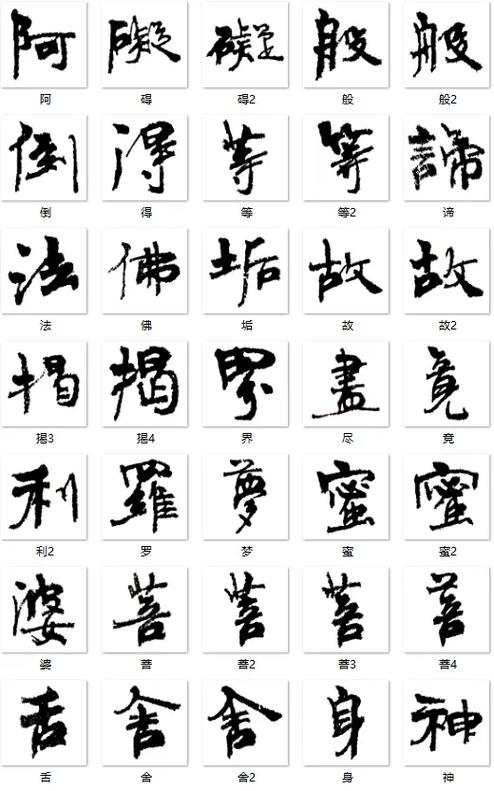 阿 礙 礙 般 般
阿 碍 碍2 般 般2
倒 得 等 等 諦
倒 得 等 等2 谛
法 佛 垢 故 故
法 佛 垢 故 故2
揭 揭 界 盡 竟
揭3 揭4 界 尽 竟
利 羅 夢 蜜 蜜
利2 罗 梦 蜜 蜜2
婆 菩 菩 菩 菩
婆 菩 菩2 菩3 菩4
舌 舍 舍 身 神
舌 舍 舍2 身 神